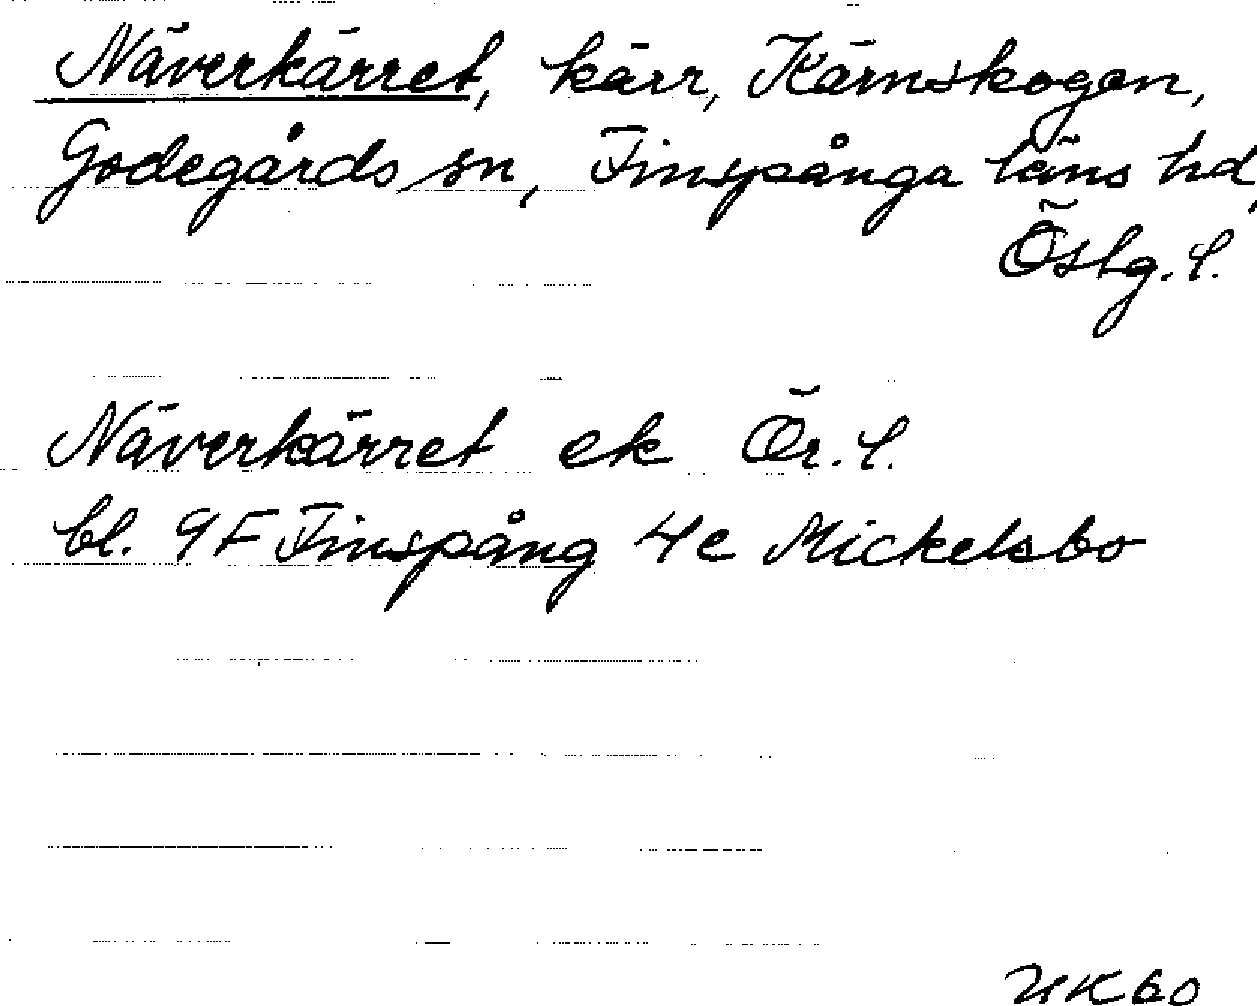 Näverkärret, kärr, Kärnskogen,
Godegårds sn, Finspånga läns hd,
Östg. l.
Näverkärret ek Ör. l.
bl. 9F Finspång 4c Mickelsbo
HK60